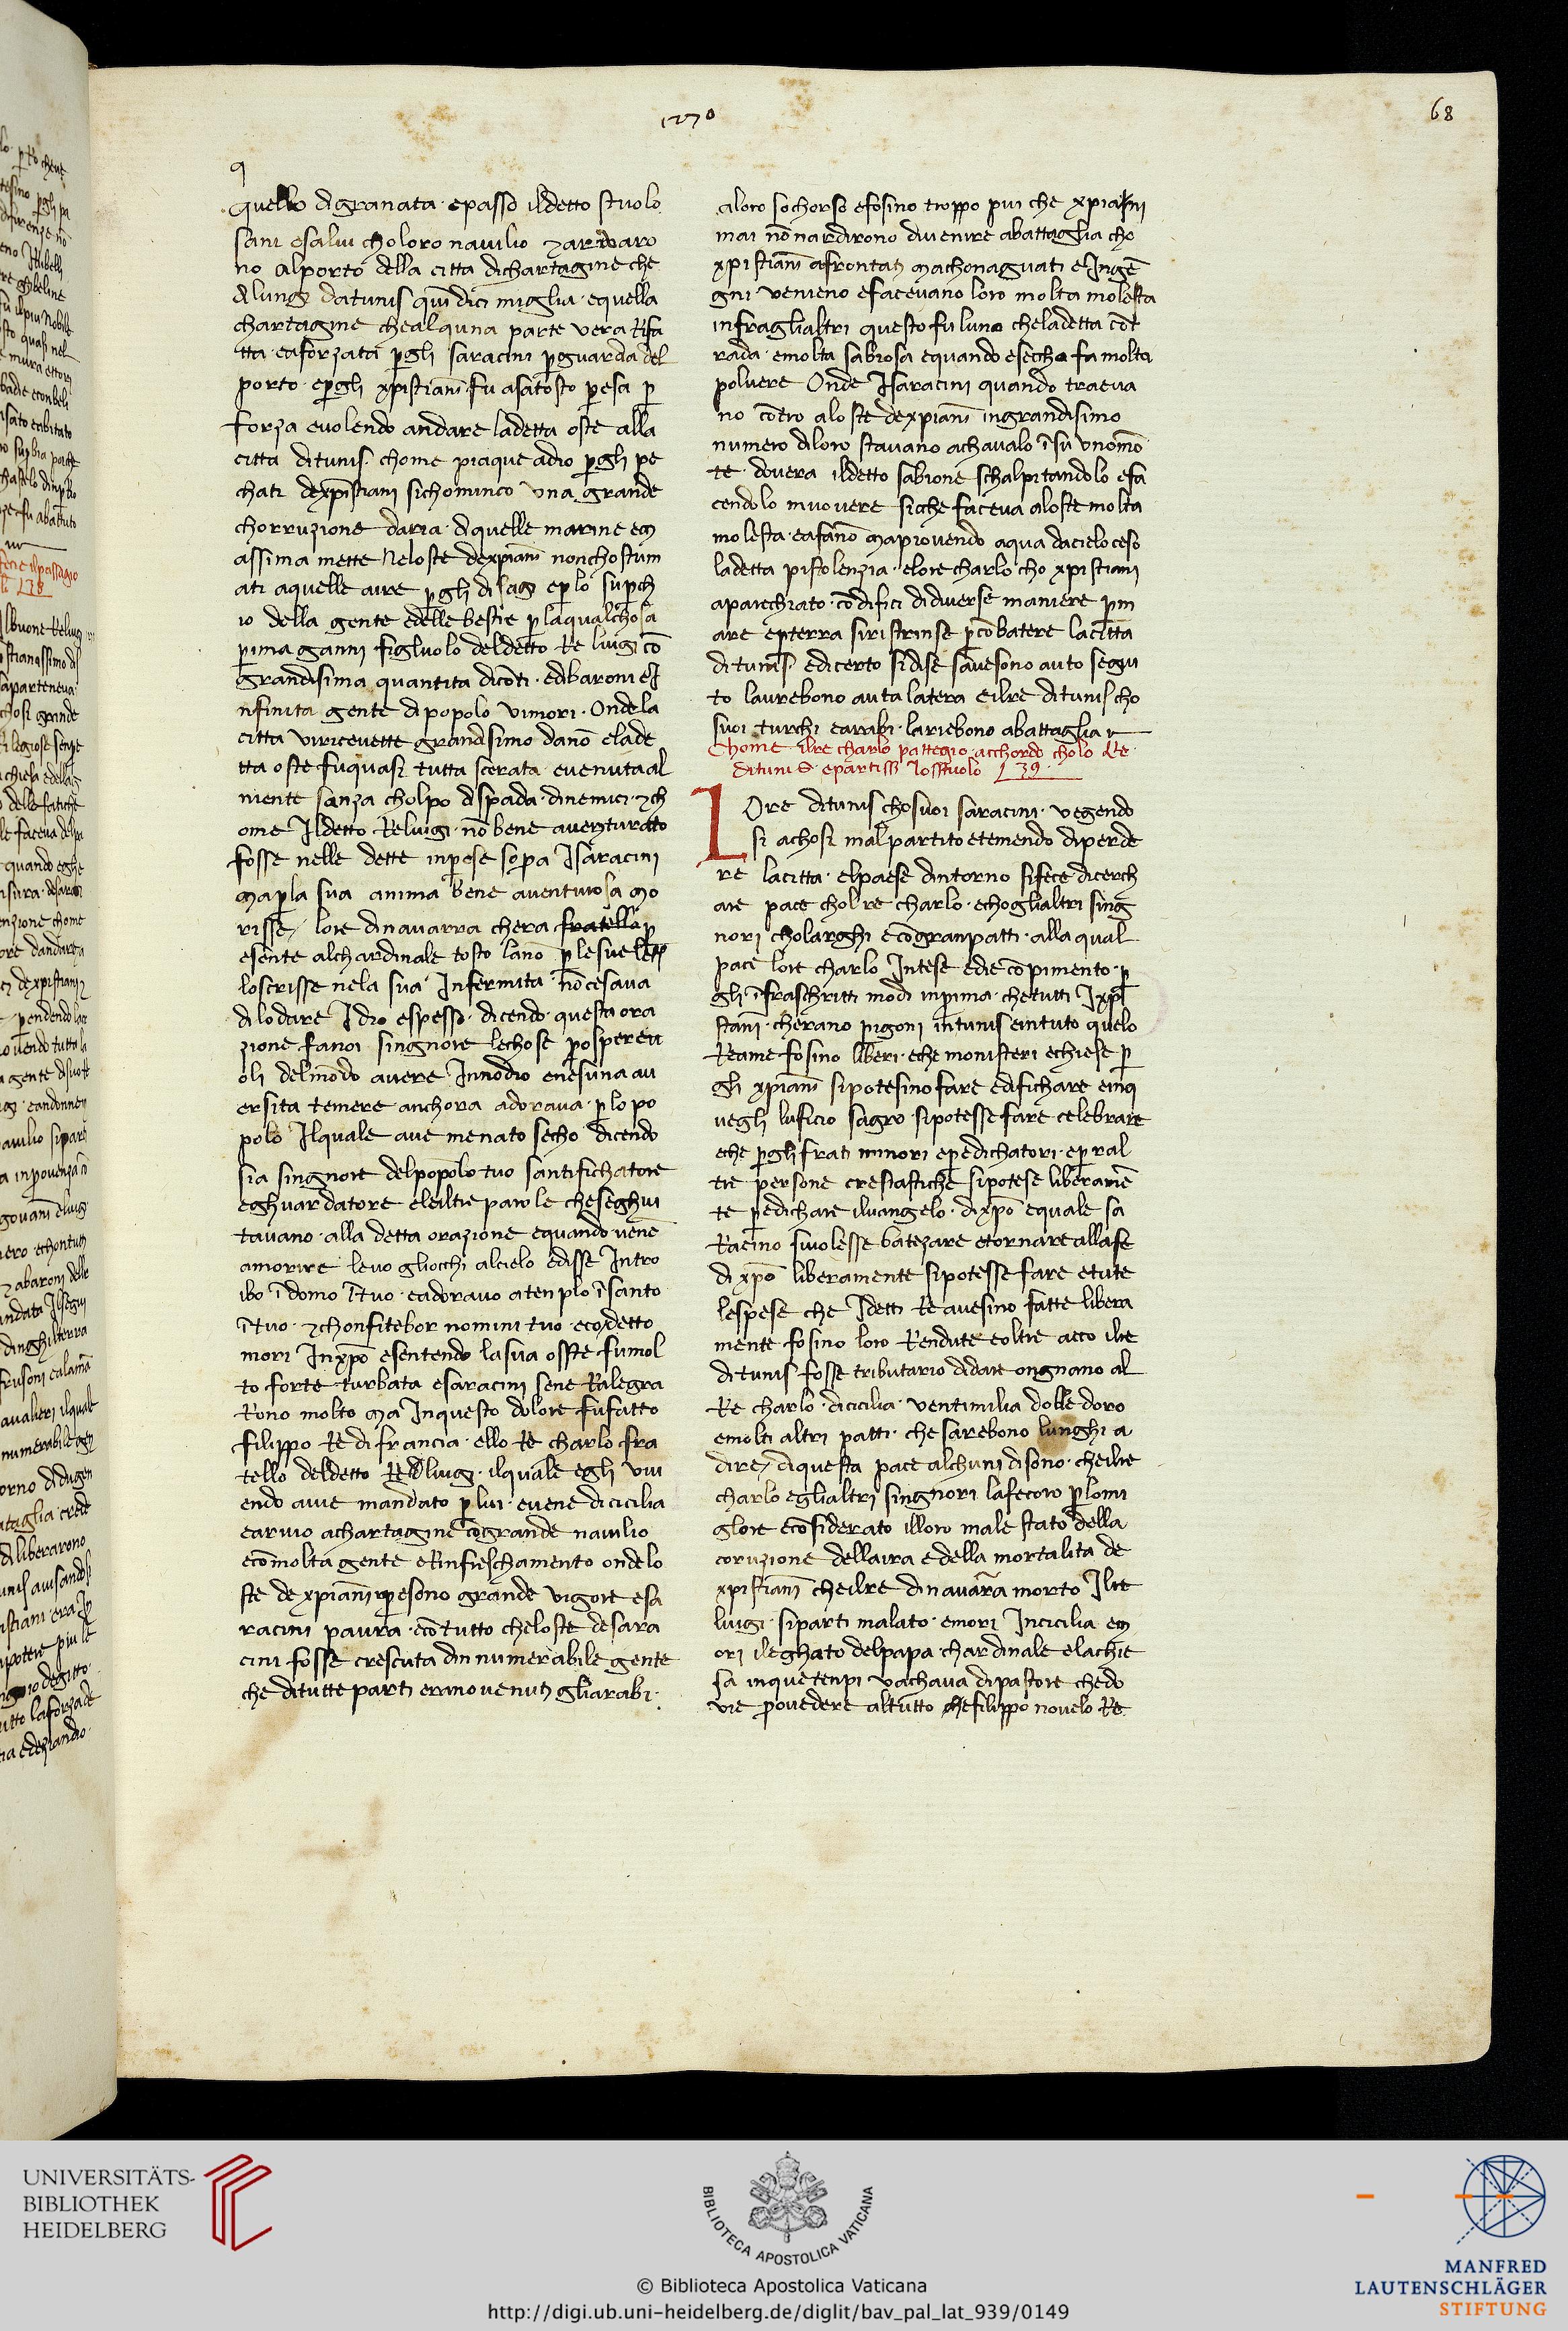 1270
68
9
quello digranata · epasso ildetto stuolo
sani esalui choloro nauilio ⁊ariuaro
no alporto della citta dichartagine che
dilungi datunis quindici miglia · equella
chartagine chealquna parte vera Rifa
tta · eaforzata p̱gli saracini p̱guardia del
porto · ep̱gli xpistiani fu asatosto p̱esa p̱
forza euolendo andare ladetta oste alla
citta ditunis · chome piaque adio p̱gli pe
chati dexpistiani sichominco vna grande
chorruzione daria · diquelle marine em
assima mette Neloste dexpiani nonchostum
ati aquelle aire p̱gli disagi ep̱lo sup̱ch
io della gente edelle bestie p̱laqualchosa
p̱ima ganni figluolo deldetto Re luigi cō
grandisima quantita dicōti · edibaroni eI
nfinita gente dipopolo vimori · Ondela
citta viriceuette grandisimo danō elade
tta oste fuquasi tutta scerata · euenutaal
niente sanza cholpo dispada · dinemici · ⁊ch
ome Ildetto Reluigi · nō bene auenturato
fosse nelle dette inp̱ese sop̱a Isaracini
map̱la sua anima bene auenturosa mo
risse / lore dinauarra chera fratello p̱
esente alchardinale tosto lanō p̱lesue letṯ
loscrisse nela sua Infermita · nōcesaua
dilodare Idio espesso · dicendo · questa ora
zione fanoi singnore lechose p̱osp̱ereu
oli delmōdo auere Innodio enesuna au
ersita temere · anchora adoraua · p̱lo po
polo Ilquale aue menato secho · dicendo
sia singnore delpopolo tuo santifichatore
eghuardatore elealtre parole cheseghui
tauano · alla detta orazione equando venē
amorire leuo gliocchi alcielo edisse Intro
ibo ī domo ītuo · eadorauo atenplo ī santo
ītuo · ⁊chonfitebor nomini tuo · ecodetto
mori Inxpō esentendo lasua osste fumol
to forte turbata esaracini sene Ralegra
Rono molto ma Inquesto dolore fufatto
filippo Re difrancia · ello Re charlo fra
tello deldetto Re luigi · ilquale egli viu
endo aue mandato p̱lui · euene dicicilia
eariuo achartagine cōgrande nauilio
ecōmolta gente eRinfreschamento ondelo
ste dexpiani p̱esono grande vigore esa
racini paura · ecōtutto cheloste desara
cini fosse crescuta dinnumerabile gente
che ditutte parti eranouenuti gliarabi ·
aloro sochorso efosino troppo piu che xpiani
mai nōnardirono diuenire abattaglia cho
xpistiani afrontati machonaguati eIngē
gni · venieno efaceuano loro molta molesta
infraglialtri questo fu luno cheladetta cōt
rada · emolta sabiosa equando esecha fa molta
poluere Onde Isaracini quando traeua
no cōtro aloste dexpiani ingrandisimo
numero diloro stauano achaualo ī su vnomō
te · douera ildetto sabione schalpitandolo efa
cendolo muouere sicche faceua aloste molta
molesta · eafanō mapiouendo aqua dacieloceso
ladetta pistolenzia · elore charlo cho xpistiani
aparechiato · cō dificci didiuerse maniere p̱m
are ep̱terra siristrinse p̱cōbatere lacitta
ditunis edicerto sidise sauesono auto segui
to laurebono auta latera eilre ditunis cho
suoi turchi earrabi · lariebono abattaglia
Chome ilre charlo pattegio · acchordo cholo Re ·
ditunis · epartissi Lo sstuolo 139
LOre ditunis chosuoi saracini · vegendo
si achosi mal partito etemendo diperde
re lacitta · elpaese dintorno sifece dicerch
are pace chol re charlo · echoglialtri sing
nori cholarghi ecōgranpatti · alla qual
pace lore charlo Intese edie cōpimento · p̱
gli īfraschritti modi inp̱ima · chetutti Ixp̱i
stani · cherano p̱igoni intunis eintuto quelo
Reame fosino liberi · eche monisteri echiese p̱
gli xpiani sipotesino fare edifichare eini
uegli luficio sagro · sipotesse fare · celebrare
eche p̱gli frati minori ep̱edichatori · ep̱ral
tre persone cresiastiche sipotese liberamē
te p̱edichare iluangelo · dixpō equale sa
Racino siuolesse batezare etornare allafe
di xpō liberamente sipotesse fare etute
lespese che Idetti Re auesino fatte libera
mente · fosino loro Rendute eoltre acco ilre
ditunis · fosse tributario didare ongnano al
Re charlo · dicicilia · ventimilia doble doro
emolti altri patti · che sarebono lunghi a
dire / diquesta pace alchuni disono · cheilre
charlo eglialtri singnori lafecoro p̱lomi
glore ecōsiderato illoro male stato della
coruzione dellaira edella mortalita de
xpistiani cheilre dinauarra morto Ilre
luigi · siparti malato · emori Incicilia em
ori ileghato delpapa · chardinale elachie
sa inquetenpi vachaua dipastore chedo
uie prouedere altutto chefilippo nouelo Re
UNIVERSITÄTS-
BIBLIOTHEK
HEIDELBERG
BIBLIOTECA APOSTOLICA VATICANA
© Biblioteca Apostolica Vaticana
http://digi.ub.uni-heidelberg.de/diglit/bav_pal_lat_939/0149
MANFRED
LAUTENSCHLÄGER
STIFTUNG